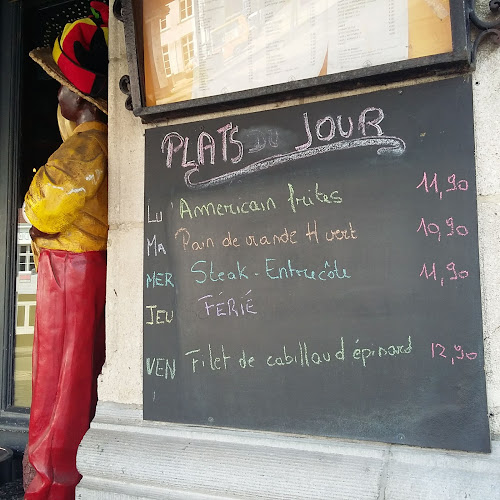 PLATS DU JOUR
LU Americain frites 11,90
MA Pain de viande H vert 10,90
MER Steak - Entrecôte 11,90
JEU FÉRIÉ
VEN Filet de cabillaud épinard 12,90